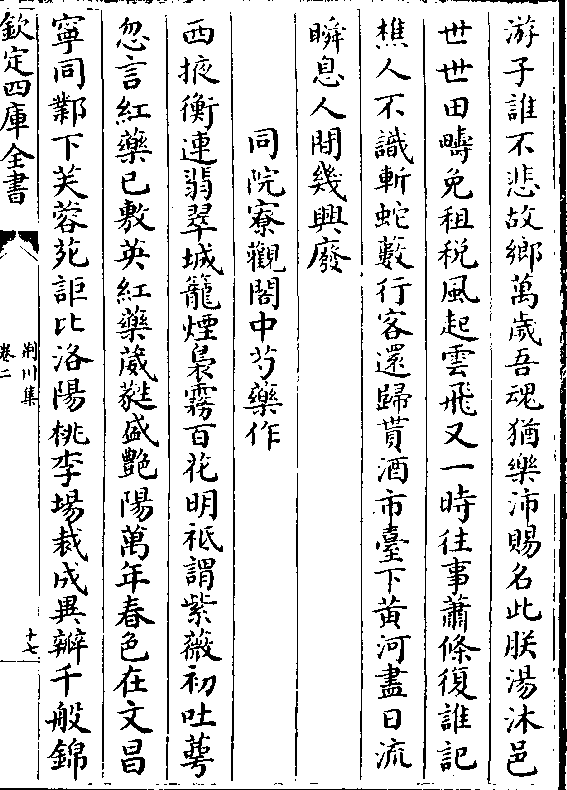 游子誰不悲故鄉萬歲吾魂猶樂沛賜名此朕湯沐邑
世世田疇免租稅風起雲飛又一時往事蕭條復誰記
樵人不識斬蛇藪行客還歸貰酒市臺下黃河盡日流
瞬息人間幾興廢
同院寮觀閣中芍藥作
西掖衡連翡翠城籠煙裊霧百花明祗謂紫薇初吐萼
忽言紅藥已敷英紅藥葳蕤盛艷陽萬年春色在文昌
寧同鄴下芙蓉苑詎比洛陽桃李場裁成異瓣千般錦
欽定四庫全書
荆川集
卷二
十七